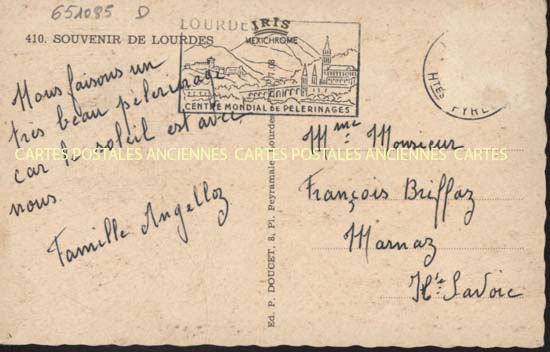 651085 D
410. SOUVENIR DE LOURDES
LOURDES
IRIS
MEXICHROME
CENTRE MONDIAL DE PELERINAGES
Htes PYR
Nous faisons un
très beau pélerinage
car le soleil est avec
nous.
Famille Angelloz
Ed. P. DOUCET, 8, Pl. Peyramale, Lourdes
CARTES POSTALES ANCIENNES CARTES POSTALES ANCIENNES CARTES
Mme Monsieur
François Briffaz
Marnaz
Hte Savoie